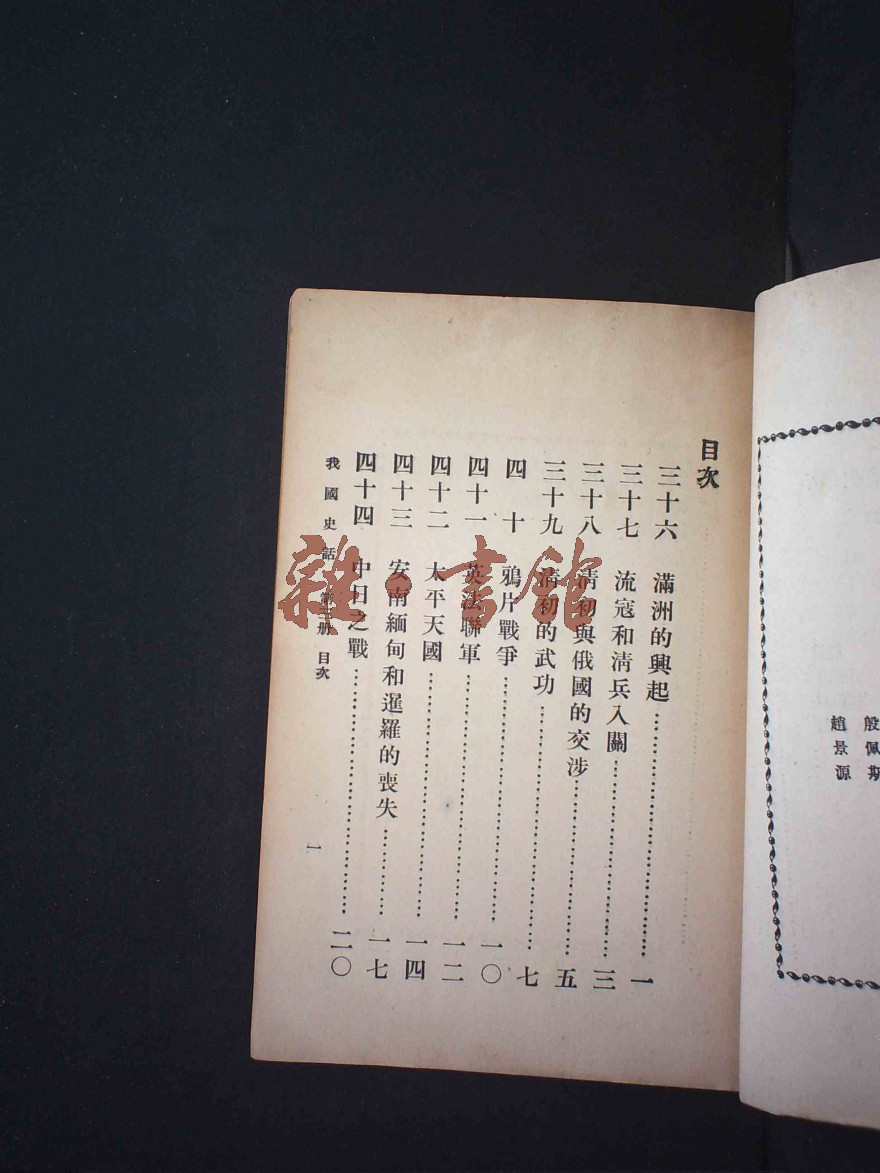 殷佩斯
趙景源
目次
三十六 滿洲的興起……………………一
三十七 流寇和清兵入關……………………三
三十八 清初與俄國的交涉……………………五
三十九 清初的武功……………………七
四十 鴉片戰爭……………………一〇
四十一 英法聯軍……………………一二
四十二 太平天國……………………一四
四十三 安南緬甸和暹羅的喪失……………………一七
四十四 中日之戰……………………二〇
我國史話 第三册 目次
一
雜·書館